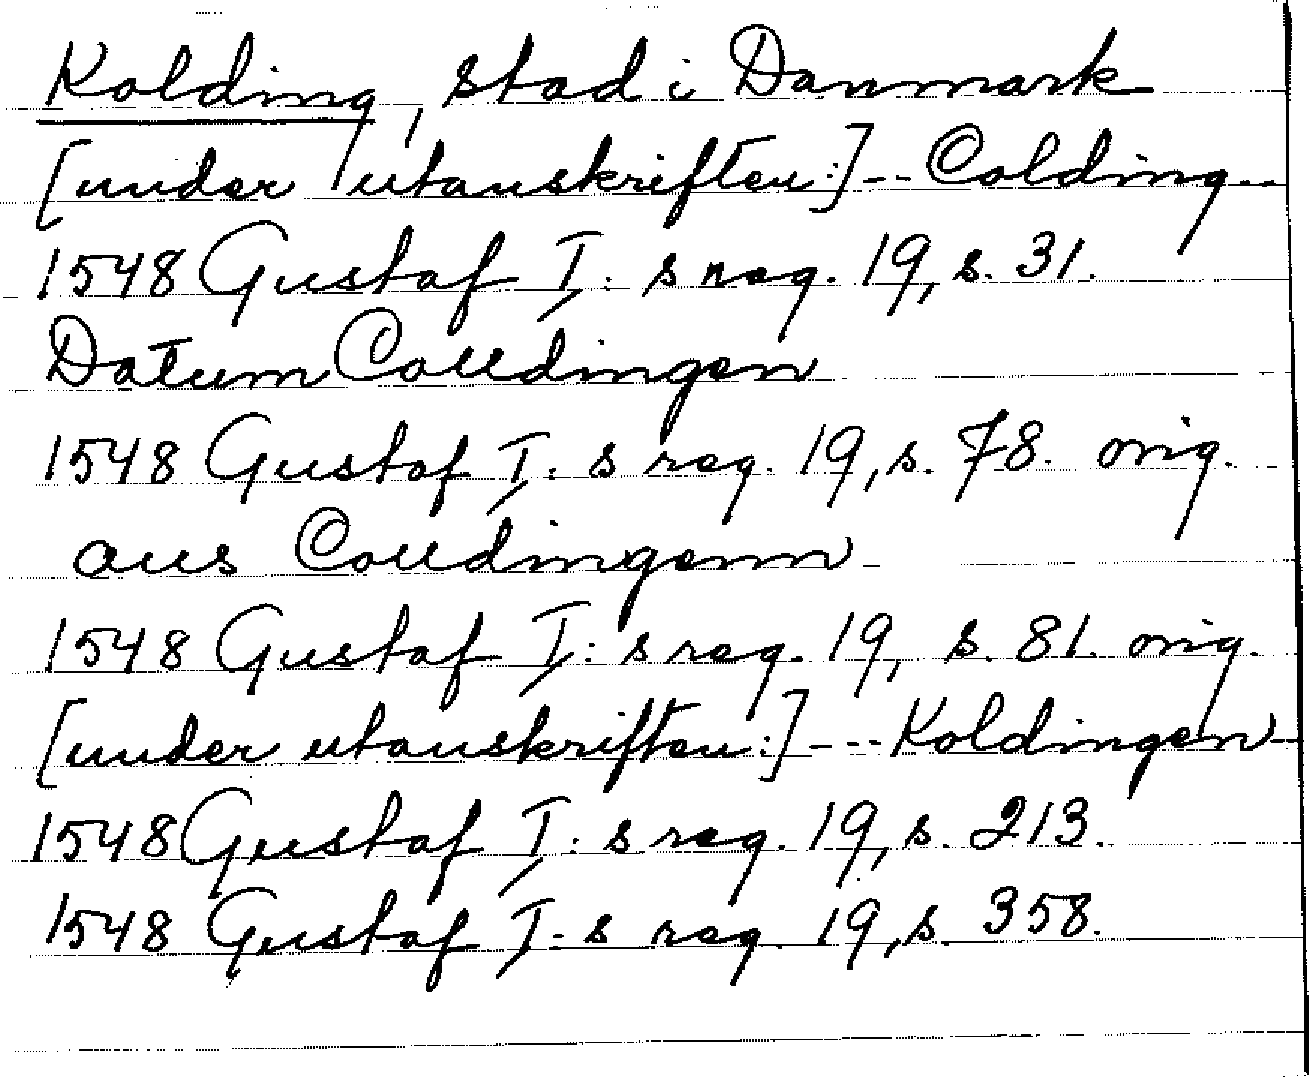 Kolding, stad i Danmark
[under utanskriften:]--Colding--
1548 Gustaf I:s reg. 19, s. 31.
Datum Colldingen
1548 Gustaf I:s reg. 19, s. 78. orig.
aus Colldingenn
1548 Gustaf I:s reg. 19, s. 81. orig.
[under utanskriften:]---Koldingen-
1548 Gustaf I:s reg. 19, s. 213.
1548 Gustaf I:s reg. 19, s. 358.